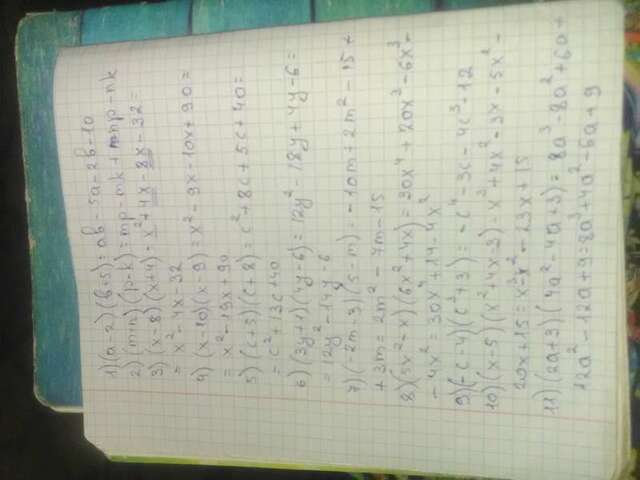 1) (a-2)(b+5) = ab-5a-2b-10
2) (m+n)(p-k) = mp-mk+mnp-nk
3) (x-8)(x+4) = x²+4x-8x-32=
= x²-4x-32
4) (x-10)(x-9) = x²-9x-10x+90=
= x²-19x+90
5) (c+5)(c+8) = c²+8c+5c+40=
= c²+13c+40
6) (3y+1)(4y-6) = 12y²-18y+4y-6=
= 12y²-14y-6
7) (-2m-3)(5-m) = -10m+2m²-15+
+3m = 2m²-7m-15
8) (5x²-x)(6x²+4x) = 30x⁴+20x³-6x³-
-4x² = 30x⁴+14-4x²
9) (-c-4)(c³+3) = -c⁴-3c-4c³-12
10) (x-5)(x²+4x-3) = x³+4x²-3x-5x²-
20x+15 = x³-x²-23x+15
11) (2a+3)(4a²-4a+3) = 8a³-8a²+6a+
12a²-12a+9=8a³+4a²-6a+9